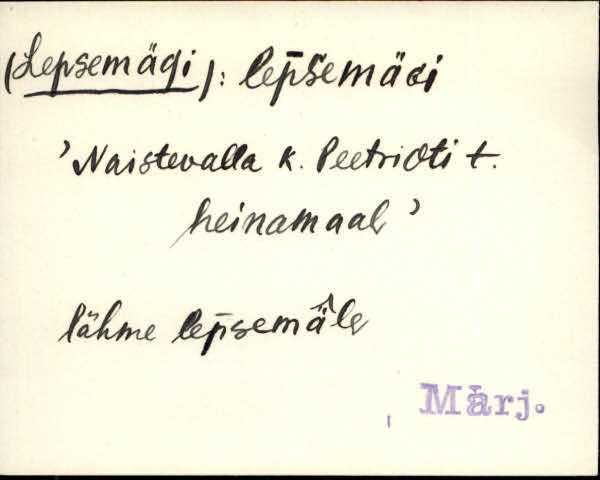 (Lepsemägi): lep̄semägi
'Naistevalla k. Peetrioti t.
heinamaal'
lähme lep̄semä̂le
Märj.